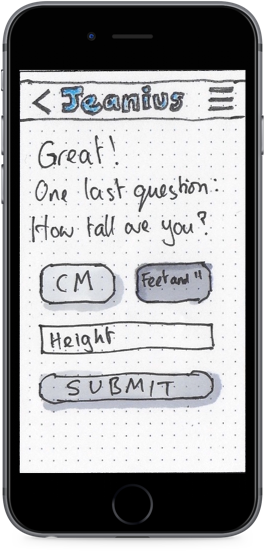 < Jeanius
Great!
One last question:
How tall are you?
CM
Feet and "
Height
SUBMIT